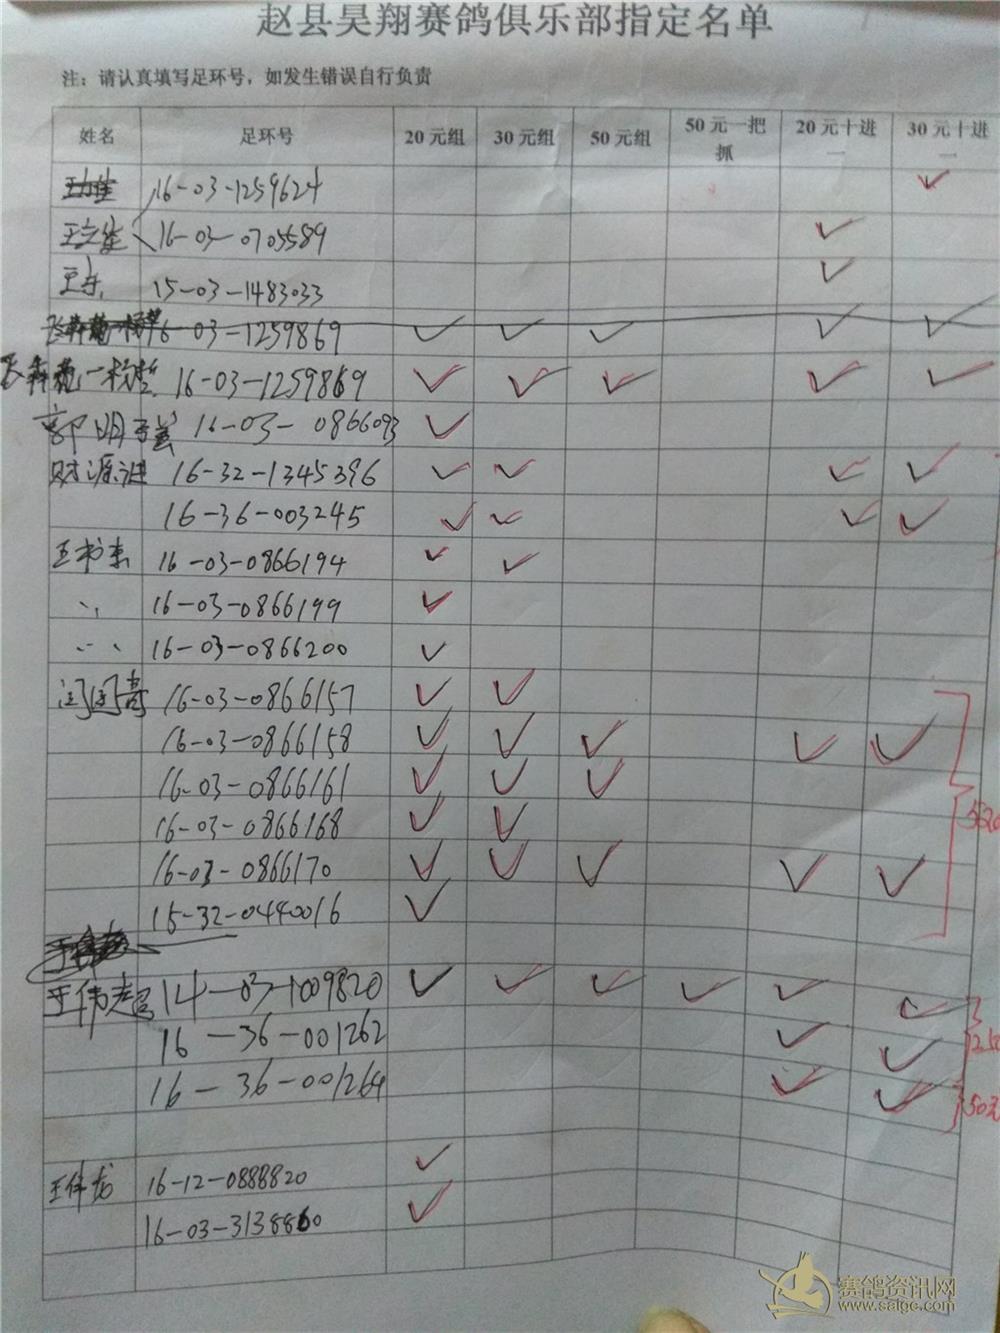 赵县昊翔赛鸽俱乐部指定名单
注：请认真填写足环号，如发生错误自行负责
姓名 足环号 20元组 30元组 50元组 50元一把抓 20元十进一 30元十进一
16-03-1259624 ✓
王立佳 16-03-0705589 ✓
15-03-1483033 ✓
16-03-1259869 ✓ ✓ ✓ ✓ ✓
16-03-1259869 ✓ ✓ ✓ ✓ ✓
郭明 16-03-0866093 ✓
财源进 16-32-1345396 ✓ ✓ ✓ ✓
16-36-003245 ✓ ✓ ✓ ✓
王书杰 16-03-0866194 ✓ ✓
16-03-0866199 ✓
16-03-0866200 ✓
闫闯哥 16-03-0866157 ✓ ✓
16-03-0866158 ✓ ✓ ✓ ✓ ✓
16-03-0866161 ✓ ✓ ✓
16-03-0866168 ✓ ✓
16-03-0866170 ✓ ✓ ✓ ✓ ✓
15-32-0440016 ✓
王伟超 14-03-1009820 ✓ ✓ ✓ ✓ ✓ ✓
16-36-001262 ✓ ✓
16-36-001264 ✓ ✓
50元
王伟龙 16-12-0888820 ✓
16-03-3138860 ✓
赛鸽资讯网
www.saige.com